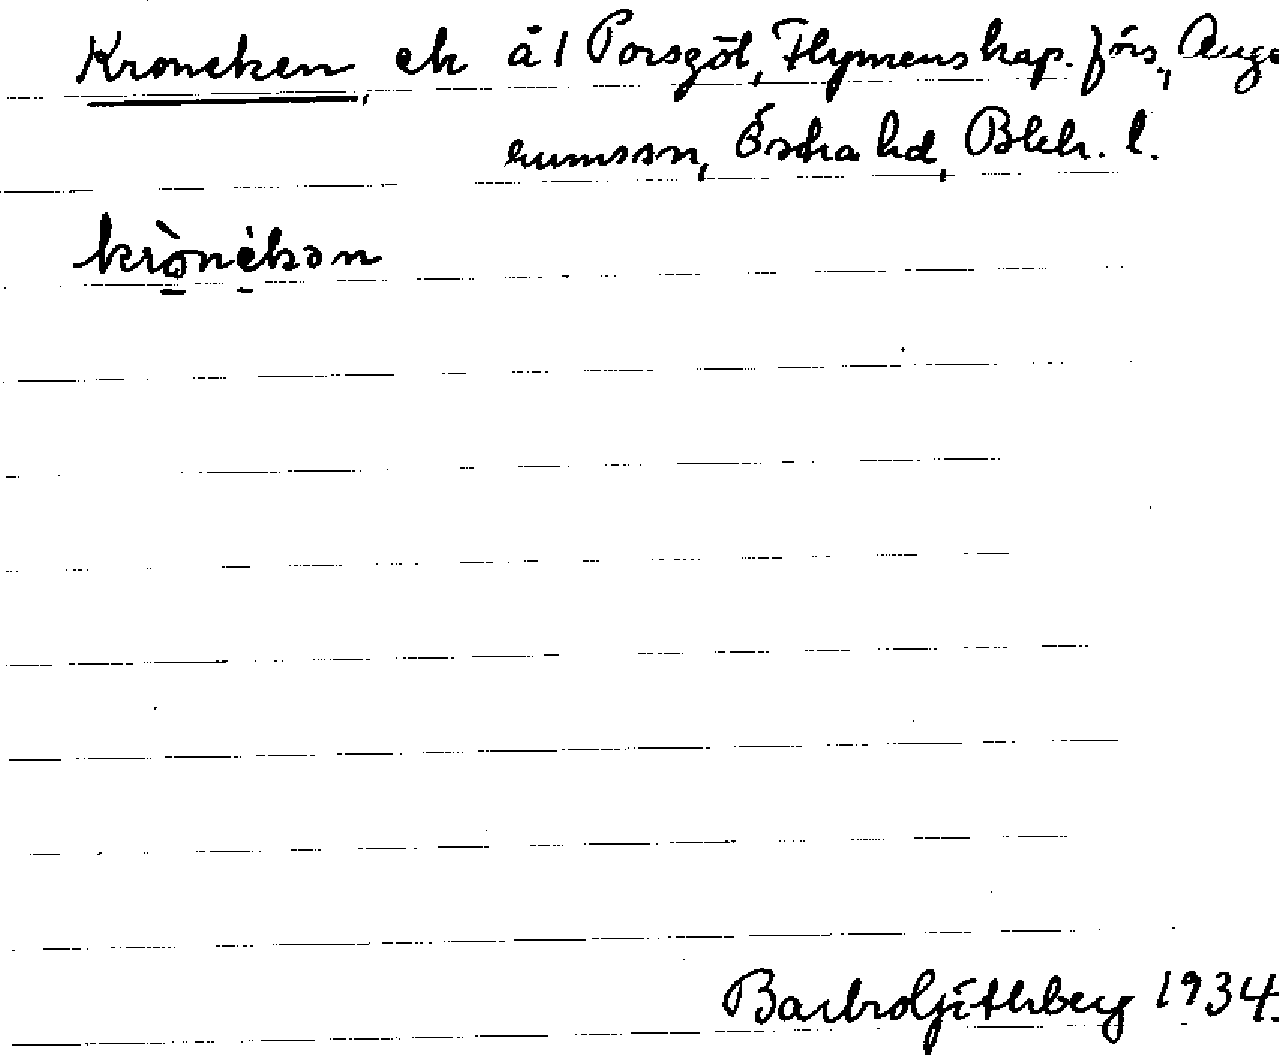 Kroneken ek å 1 Porsgöl, Flymens kap. förs., Auge
rumssn, Östra hd, Blek. l.
krònèkən
1934.